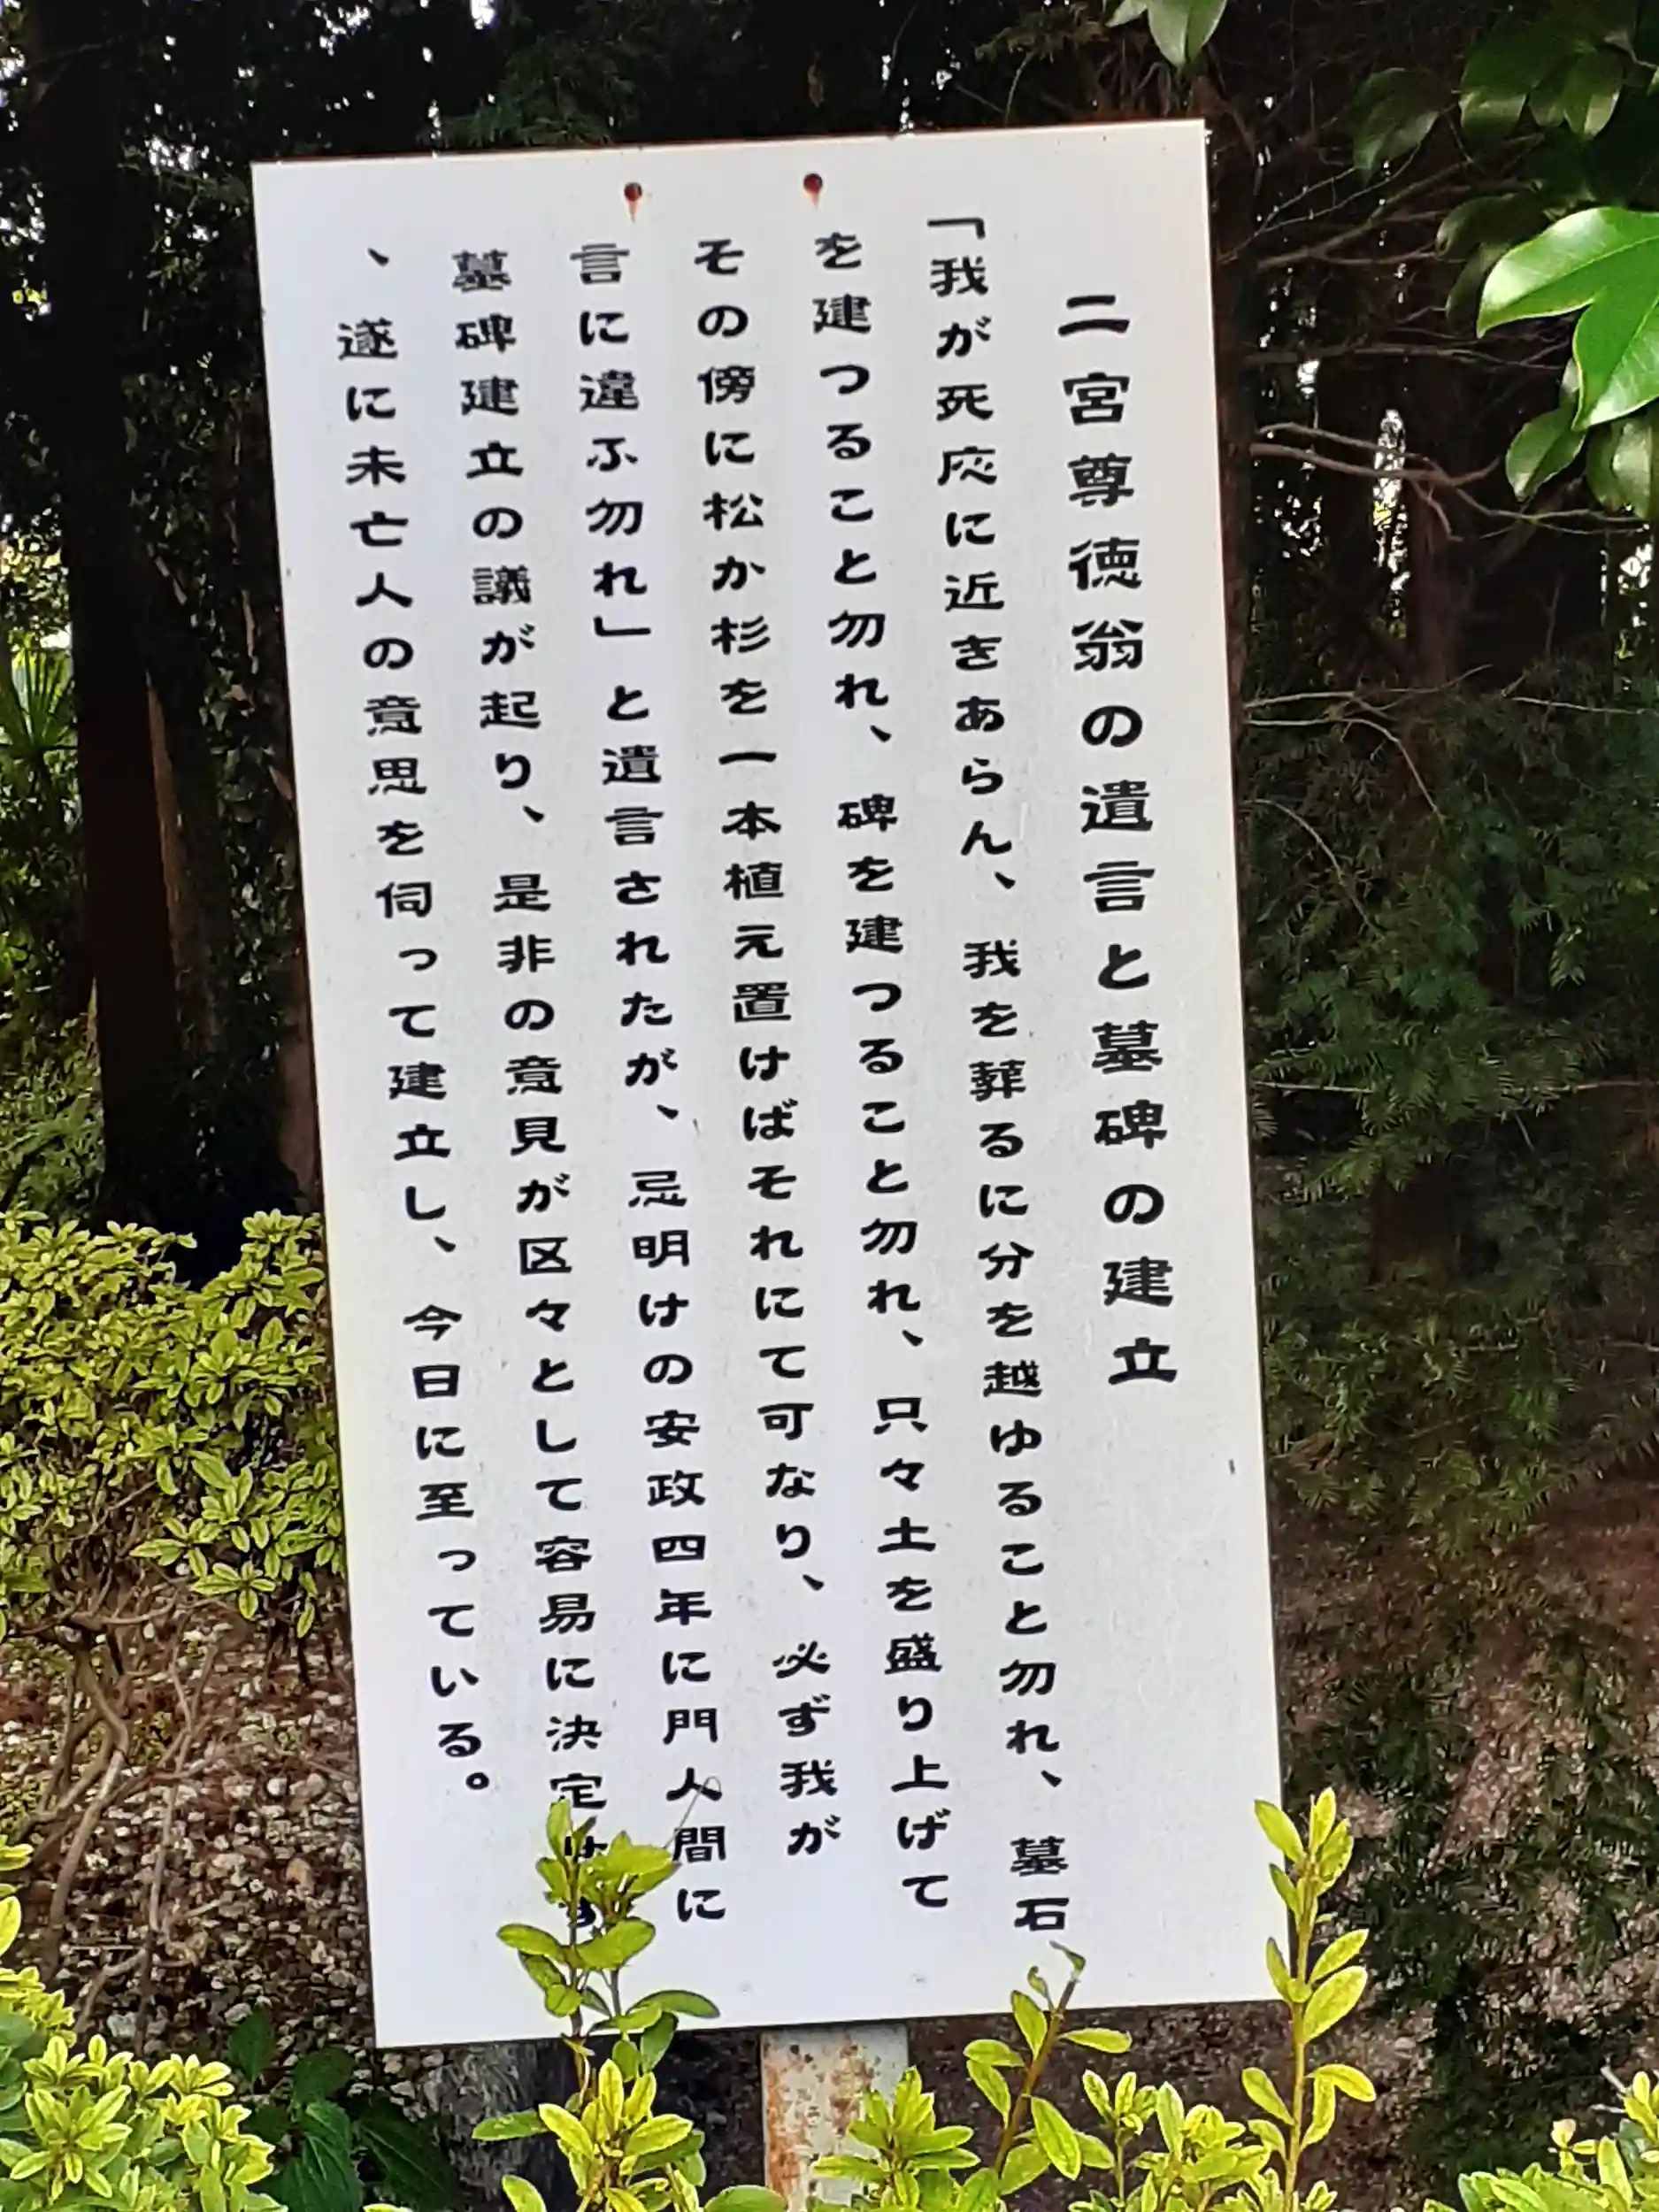 二宮尊徳翁の遺言と墓碑の建立
「我が死応に近きあらん、我を葬るに分を越ゆること勿れ、墓石
を建つること勿れ、碑を建つること勿れ、只々土を盛り上げて
その傍に松か杉を一本植元置けばそれにて可なり、必ず我が
言に違ふ勿れ」と遺言されたが、忌明けの安政四年に門人間に
墓碑建立の議が起り、是非の意見が区々として容易に決定せず
、遂に未亡人の意思を伺って建立し、今日に至っている。